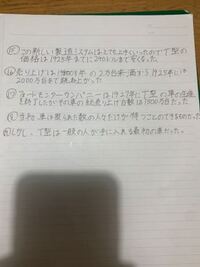 ⑮この新しい製造システムはとても上手くいったのでT型の
価格は1925年までに290ドルまで安くなった。
⑯売り上げは1908年の2万台未満から1925年には
2000万台まで跳ね上がった。
⑰フォードモーターカンパニーは1927年にT型の車の生産
を終了したがその車の総売り上げ台数は1500万台だった。
⑱当初、車は限られた数の人々だけが持つことのできるものだった。
⑲しかし、T型は一般の人が手に入れる最初の車だった。